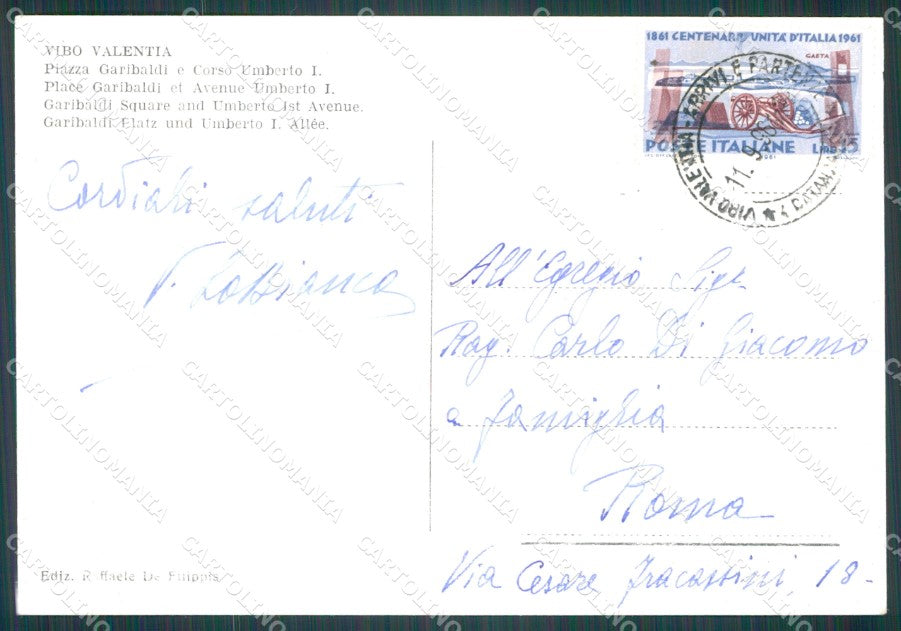 VIBO VALENTIA
Piazza Garibaldi e Corso Umberto I.
Place Garibaldi et Avenue Umberto I.
Garibaldi Square and Umberto Ist Avenue.
Garibaldi Platz und Umberto I. Allée.
1861 CENTENARIO UNITÀ D'ITALIA 1961
GAETA
POSTE ITALIANE
LIRE 15
VIBO VALENTIA - ARRIVI E PARTENZE
11.9
Cordiali saluti
F. LoBianco
All'Egregio Sigr
Rag. Carlo Di Giacomo
e famiglia
Roma
Via Cesare Fracassini 18-
Ediz. Raffaele De Filippis
CARTOLINOMANIA